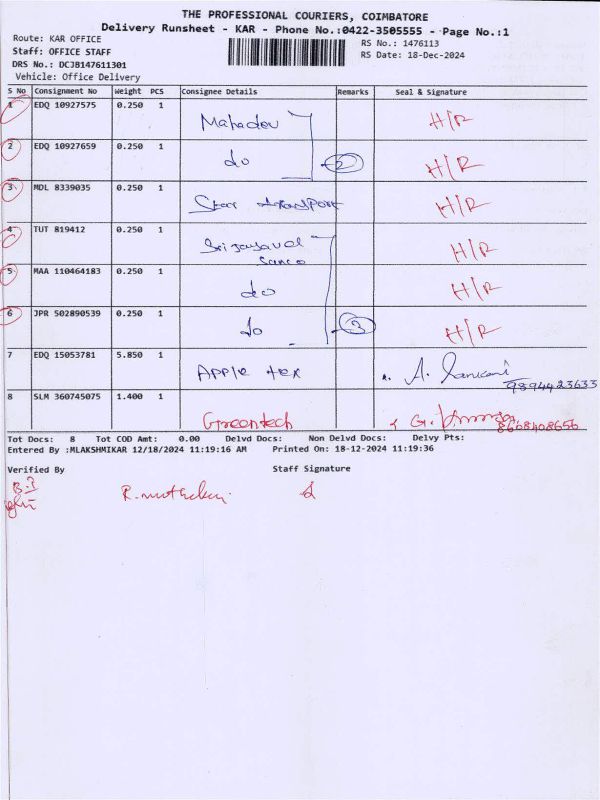 THE PROFESSIONAL COURIERS, COIMBATORE
Delivery Runsheet - KAR - Phone No.:0422-3505555 - Page No.:1
Route: KAR OFFICE
RS No.: 1476113
Staff: OFFICE STAFF
RS Date: 18-Dec-2024
DRS No.: DCJB147611301
Vehicle: Office Delivery
S No Consignment No Weight PCS Consignee Details Remarks Seal & Signature
1 EDQ 10927575 0.250 1 Mahadev H/R
2 EDQ 10927659 0.250 1 do 2 H/R
3 MDL 8339035 0.250 1 Star H/R
4 TUT 819412 0.250 1 H/R
5 MAA 110464183 0.250 1 do H/R
6 JPR 502890539 0.250 1 do 3 H/R
7 EDQ 15053781 5.850 1 Apple tex A. 9894423633
8 SLM 360745075 1.400 1 Greentech G. 8668408656
Tot Docs: 8 Tot COD Amt: 0.00 Delvd Docs: Non Delvd Docs: Delvy Pts:
Entered By :MLAKSHMIKAR 12/18/2024 11:19:16 AM Printed On: 18-12-2024 11:19:36
Verified By Staff Signature